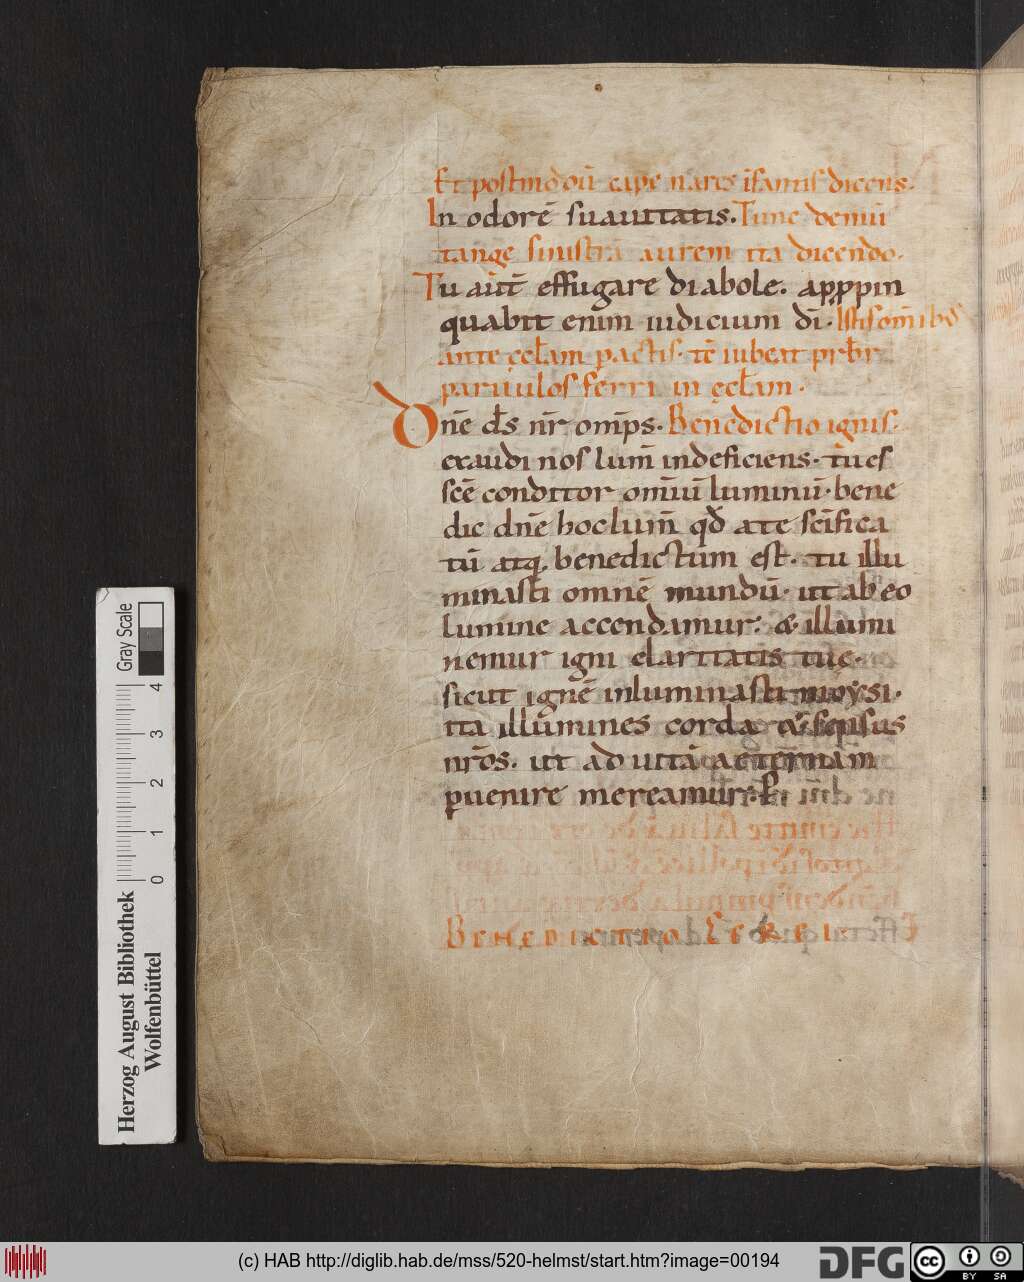 Et postmodū cape nares īfantis dicens.
In odorē suauitatis. Tunc demū
tange sinistrā aurem ita dicendo.
Tu aūt effugare diabole. appp̱in
quabit enim iudicium dī. Istis om̄ibꝰ
ante ęcl̄am pactis. tē iubeat prb̄r
paruulos ferri in ęcl̄am.
Dn̄e d̄s nr̄ om̄ps. Benedictio ignis.
exaudi nos lum̄ indeficiens. tu es
sc̄e conditor omīuī luminū. bene
dic dn̄e hoc lum̄ qd̄ a te sc̄ifica
tū atq; benedictum est. tu illu
minasti omnē mundū. ut ab eo
lumine accendamur. & illumi
nemur igni claritatis tuę.
sicut ignē inluminasti moysi.
ita illumines corda & sensus
nr̄os. ut ad uitā aeternam
ꝑuenire mereamur.
BENEDICTIO CEREI
Gray Scale
0 1 2 3 4
Herzog August Bibliothek
Wolfenbüttel
(c) HAB http://diglib.hab.de/mss/520-helmst/start.htm?image=00194
DFG
cc
BY SA